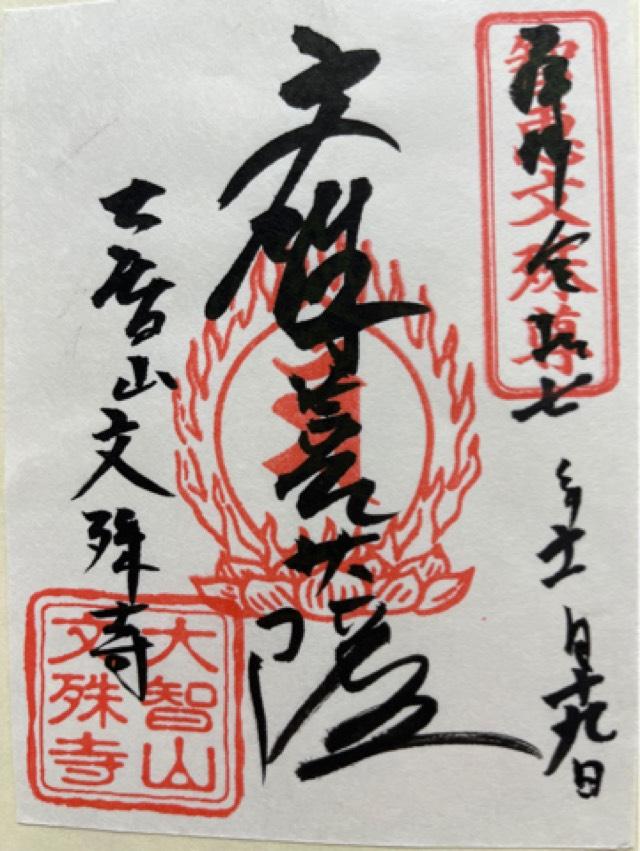 奉拝 令和七年
月十九日
智恵文殊尊
文殊菩薩
大智山文殊寺
大智山
文殊寺